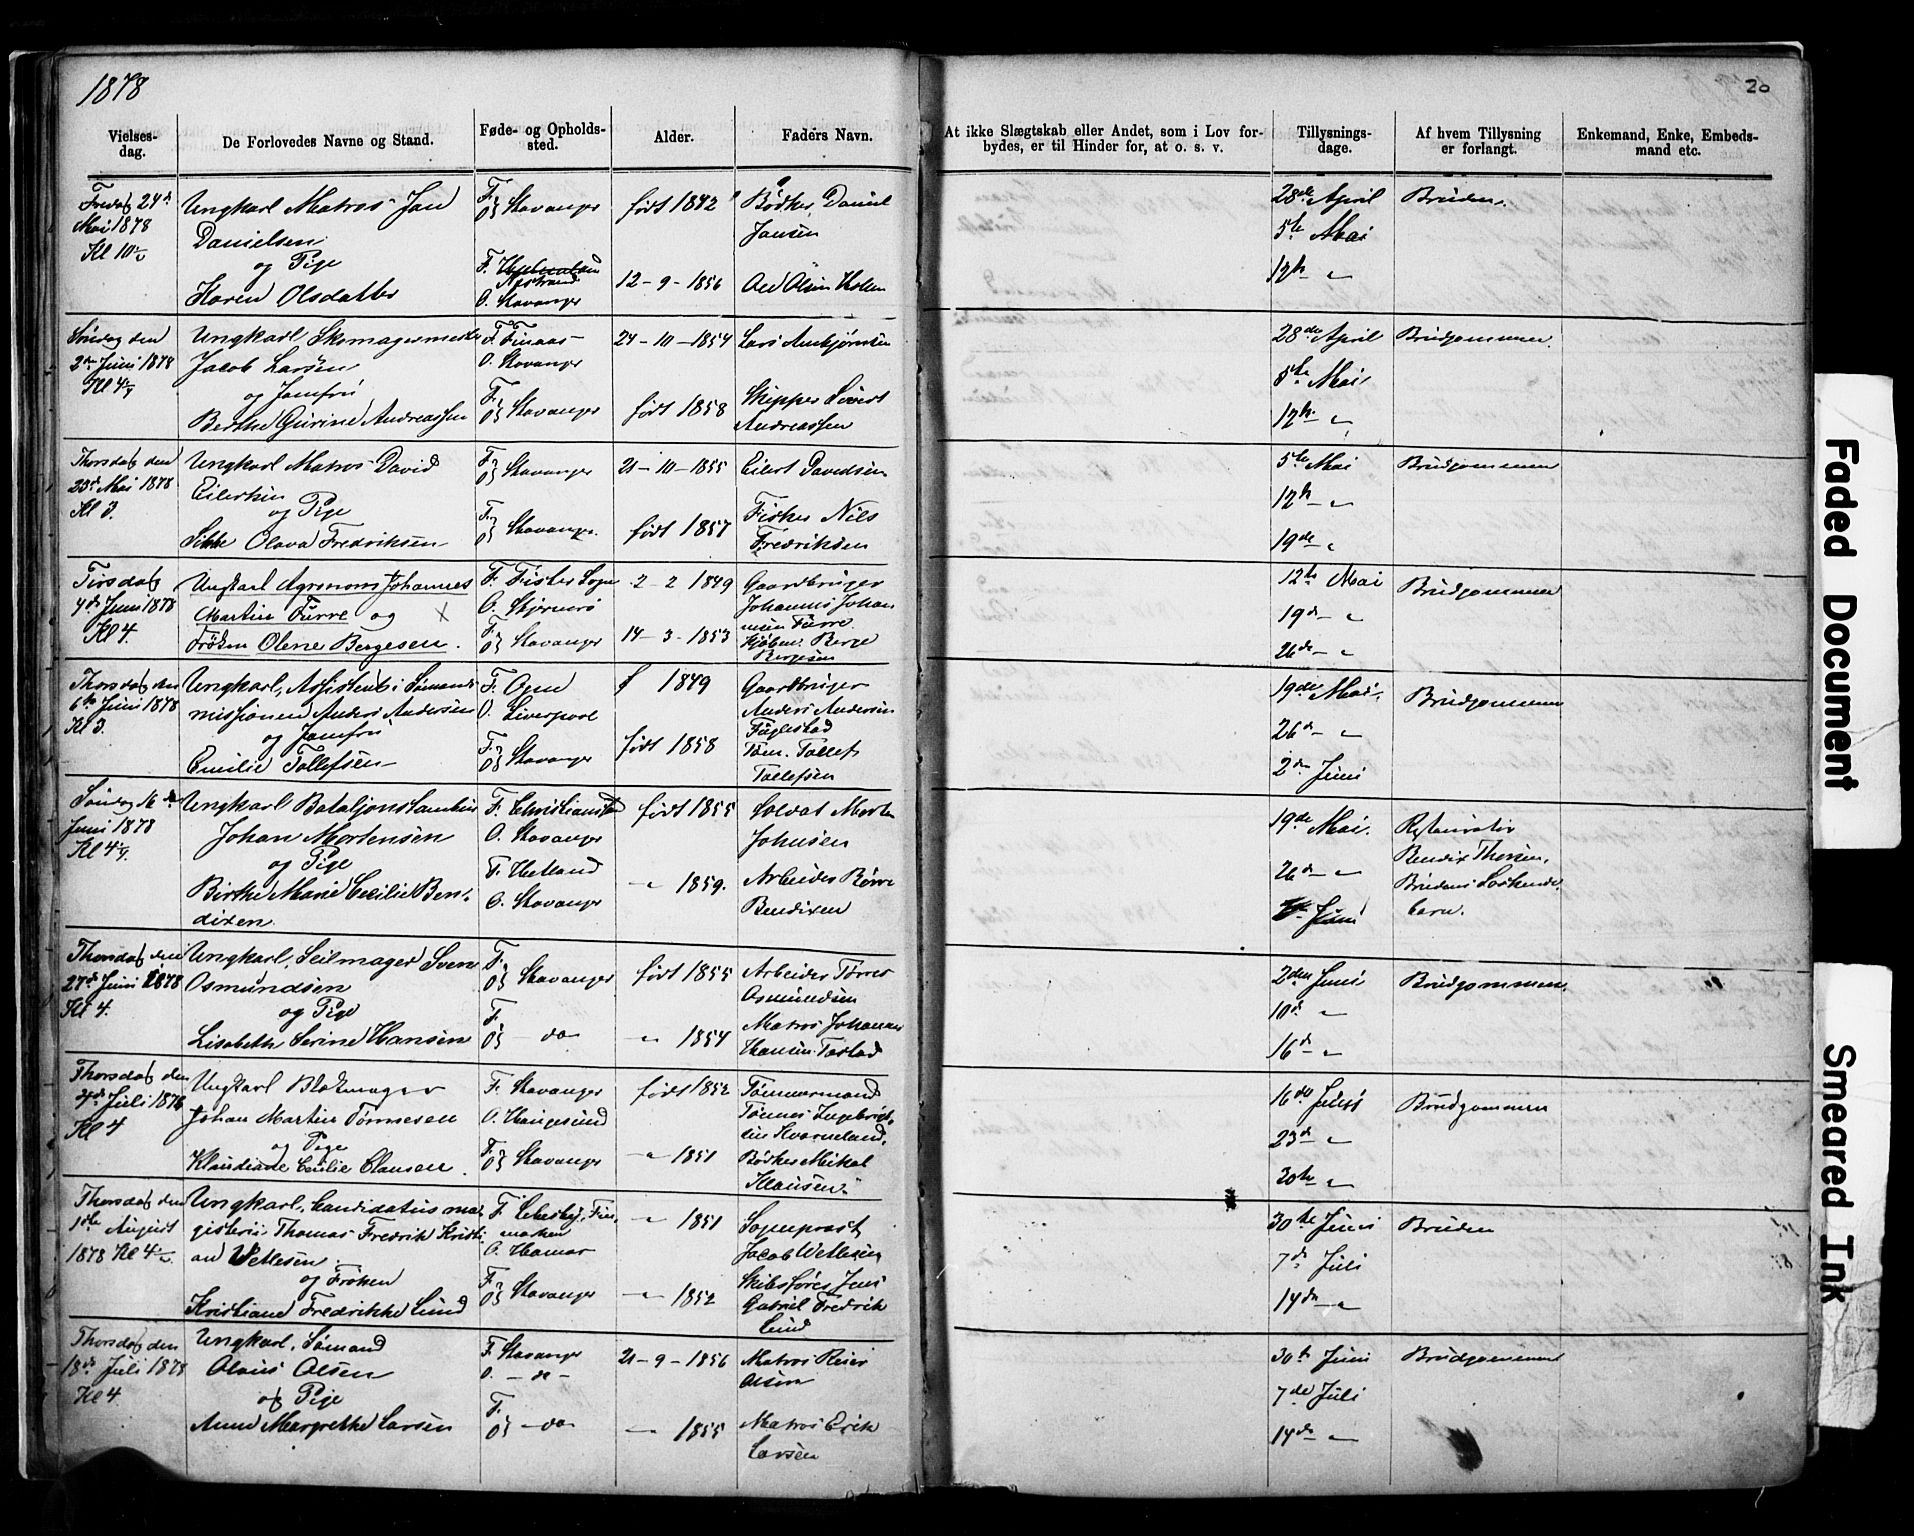 1878
20
Vielses-
dag.
De Forlovedes Navne og Stand.
Føde- og Opholds-
sted.
Alder.
Faders Navn.
At ikke Slægtskab eller Andet, som i Lov for-
bydes, er til Hinder for, at o. s. v.
Tillysnings-
dage.
Af hvem Tillysning
er forlangt.
Enkemand, Enke, Embeds-
mand etc.
Fredag 24de
Mai 1878
Kl 10½
Ungkarl Matros Jan
Danielsen
og Pige
Karen Olsdatter
F. og O. Stavanger
F.
O. Stavanger
født 1842
12-9-1856
Bødker Daniel
Jansen
28de April
5te Mai
12te "
Bruden.
Søndag den
2den Juni 1878
Kl 4¼
Ungkarl Skomagermester
Jacob Larsen
og Jomfru
Berthe Gurine Andreassen
F. Finaas
O. Stavanger
F. og O. Stavanger
24-10-1854
født 1858
Lars Ambjørnsen
Skipper Sivert
Andreassen
28de April
5te Mai
12te "
Brudgommen.
Thorsdag den
23de Mai 1878
Kl 3.
Ungkarl Matros David
Eilertsen
og Pige
Olava Fredriksen
F. og O. Stavanger
F. og O. Stavanger.
21-10-1855
født 1857
Eilert Davidsen
Fisker Nils
Fredriksen
5te Mai
12te "
19de "
Brudgommen
Tirsdag
4de Juni 1878
Kl 4.
Ungkarl Agronom Johannes
Martin Furre og
Frøken Olene Bergesen.
F. Fister Sogn
O. Stjernerø
F. og O. Stavanger
2-2 1849
14-3-1853
Gaardbruger
Johannes Johan
nesen Furre.
Kjøbm. Berge
Bergesen
12te Mai
19de "
26de "
Brudgommen
Thorsdag den
6te Juni 1878
Kl 3.
Ungkarl, Assistent i Sømands
missionen Anders Andersen
og Jomfru
Emilie Tollefsen
F. Ogne
O. Liverpool
F. og O. Stavanger
f 1849
født 1858
Gaardbruger
Anders Andersen
Fuglestad
Tøm. Tollef
Tollefsen
19de Mai.
26de "
2den Juni
Brudgommen
Søndag 16de
Juni 1878
Kl 4¼.
Ungkarl Bataljonstambur
Johan Mortensen
og Pige
Birthe Marie Cecilie Ben-
dixen.
F. Christiansand
O. Stavanger
F. Hetland
O. Stavanger
født 1855
" 1859.
Soldat Morten
Johnsen
Arbeider Børre
Bendixen
19de Mai.
26de "
Juni
Restauratør
Bendix Thorsen,
Brudens Søskende-
barn.
Thorsdag den
27de Juni 1878
Kl 4.
Ungkarl, Seilmager Svend
Osmundsen
og Pige
Lisabeth Serine Hansen
F. og O. Stavanger
F. og O. - do
født 1855
" 1854
Arbeider Tørres
Osmundsen
Matros Johannes
Hansen Tastad
2den Juni
10de "
16de "
Brudgommen.
Thorsdag den
4de Juli 1878
Kl 4
Ungkarl Blokmager
Johan Martin Tønnesen
og Pige
Klaudiane Cecilie Clausen.
F. Stavanger
O. Haugesund
F. og O. Stavanger
født 1852
" 1851
Tømmermand
Tønnes Ingebrigt-
sen Kverneland.
Bødker Mikal
Klausen.
16de Juni
23de "
30te "
Brudgommen
Thorsdag den
1ste August
1878 Kl 4½.
Ungkarl, Candidatus ma-
gisterii Thomas Fredrik Kristi-
an Vetlesen
og Frøken
Kristiane Fredrikke Lund
F. Lebesby, Fin-
marken
O. Hamar
F. og O. Stavanger
" 1851
" 1852
Sogneprest
Jacob Vetlesen
Skibsfører Jens
Gabriel Fredrik
Lund
30te Juni
7de Juli
14de "
Bruden
Thorsdag den
18de Juli 1878
Kl 4.
Ungkarl, Sømand
Olaus Olsen
og Pige
Anne Margrethe Larsen
F. Stavanger
O. - do -
F. og O. - do
21-9-1856
" 1855
Matros Reier
Olsen
Matros Erik
Larsen
30te Juni
7de Juli
14de "
Brudgommen
Faded Document
Smeared Ink